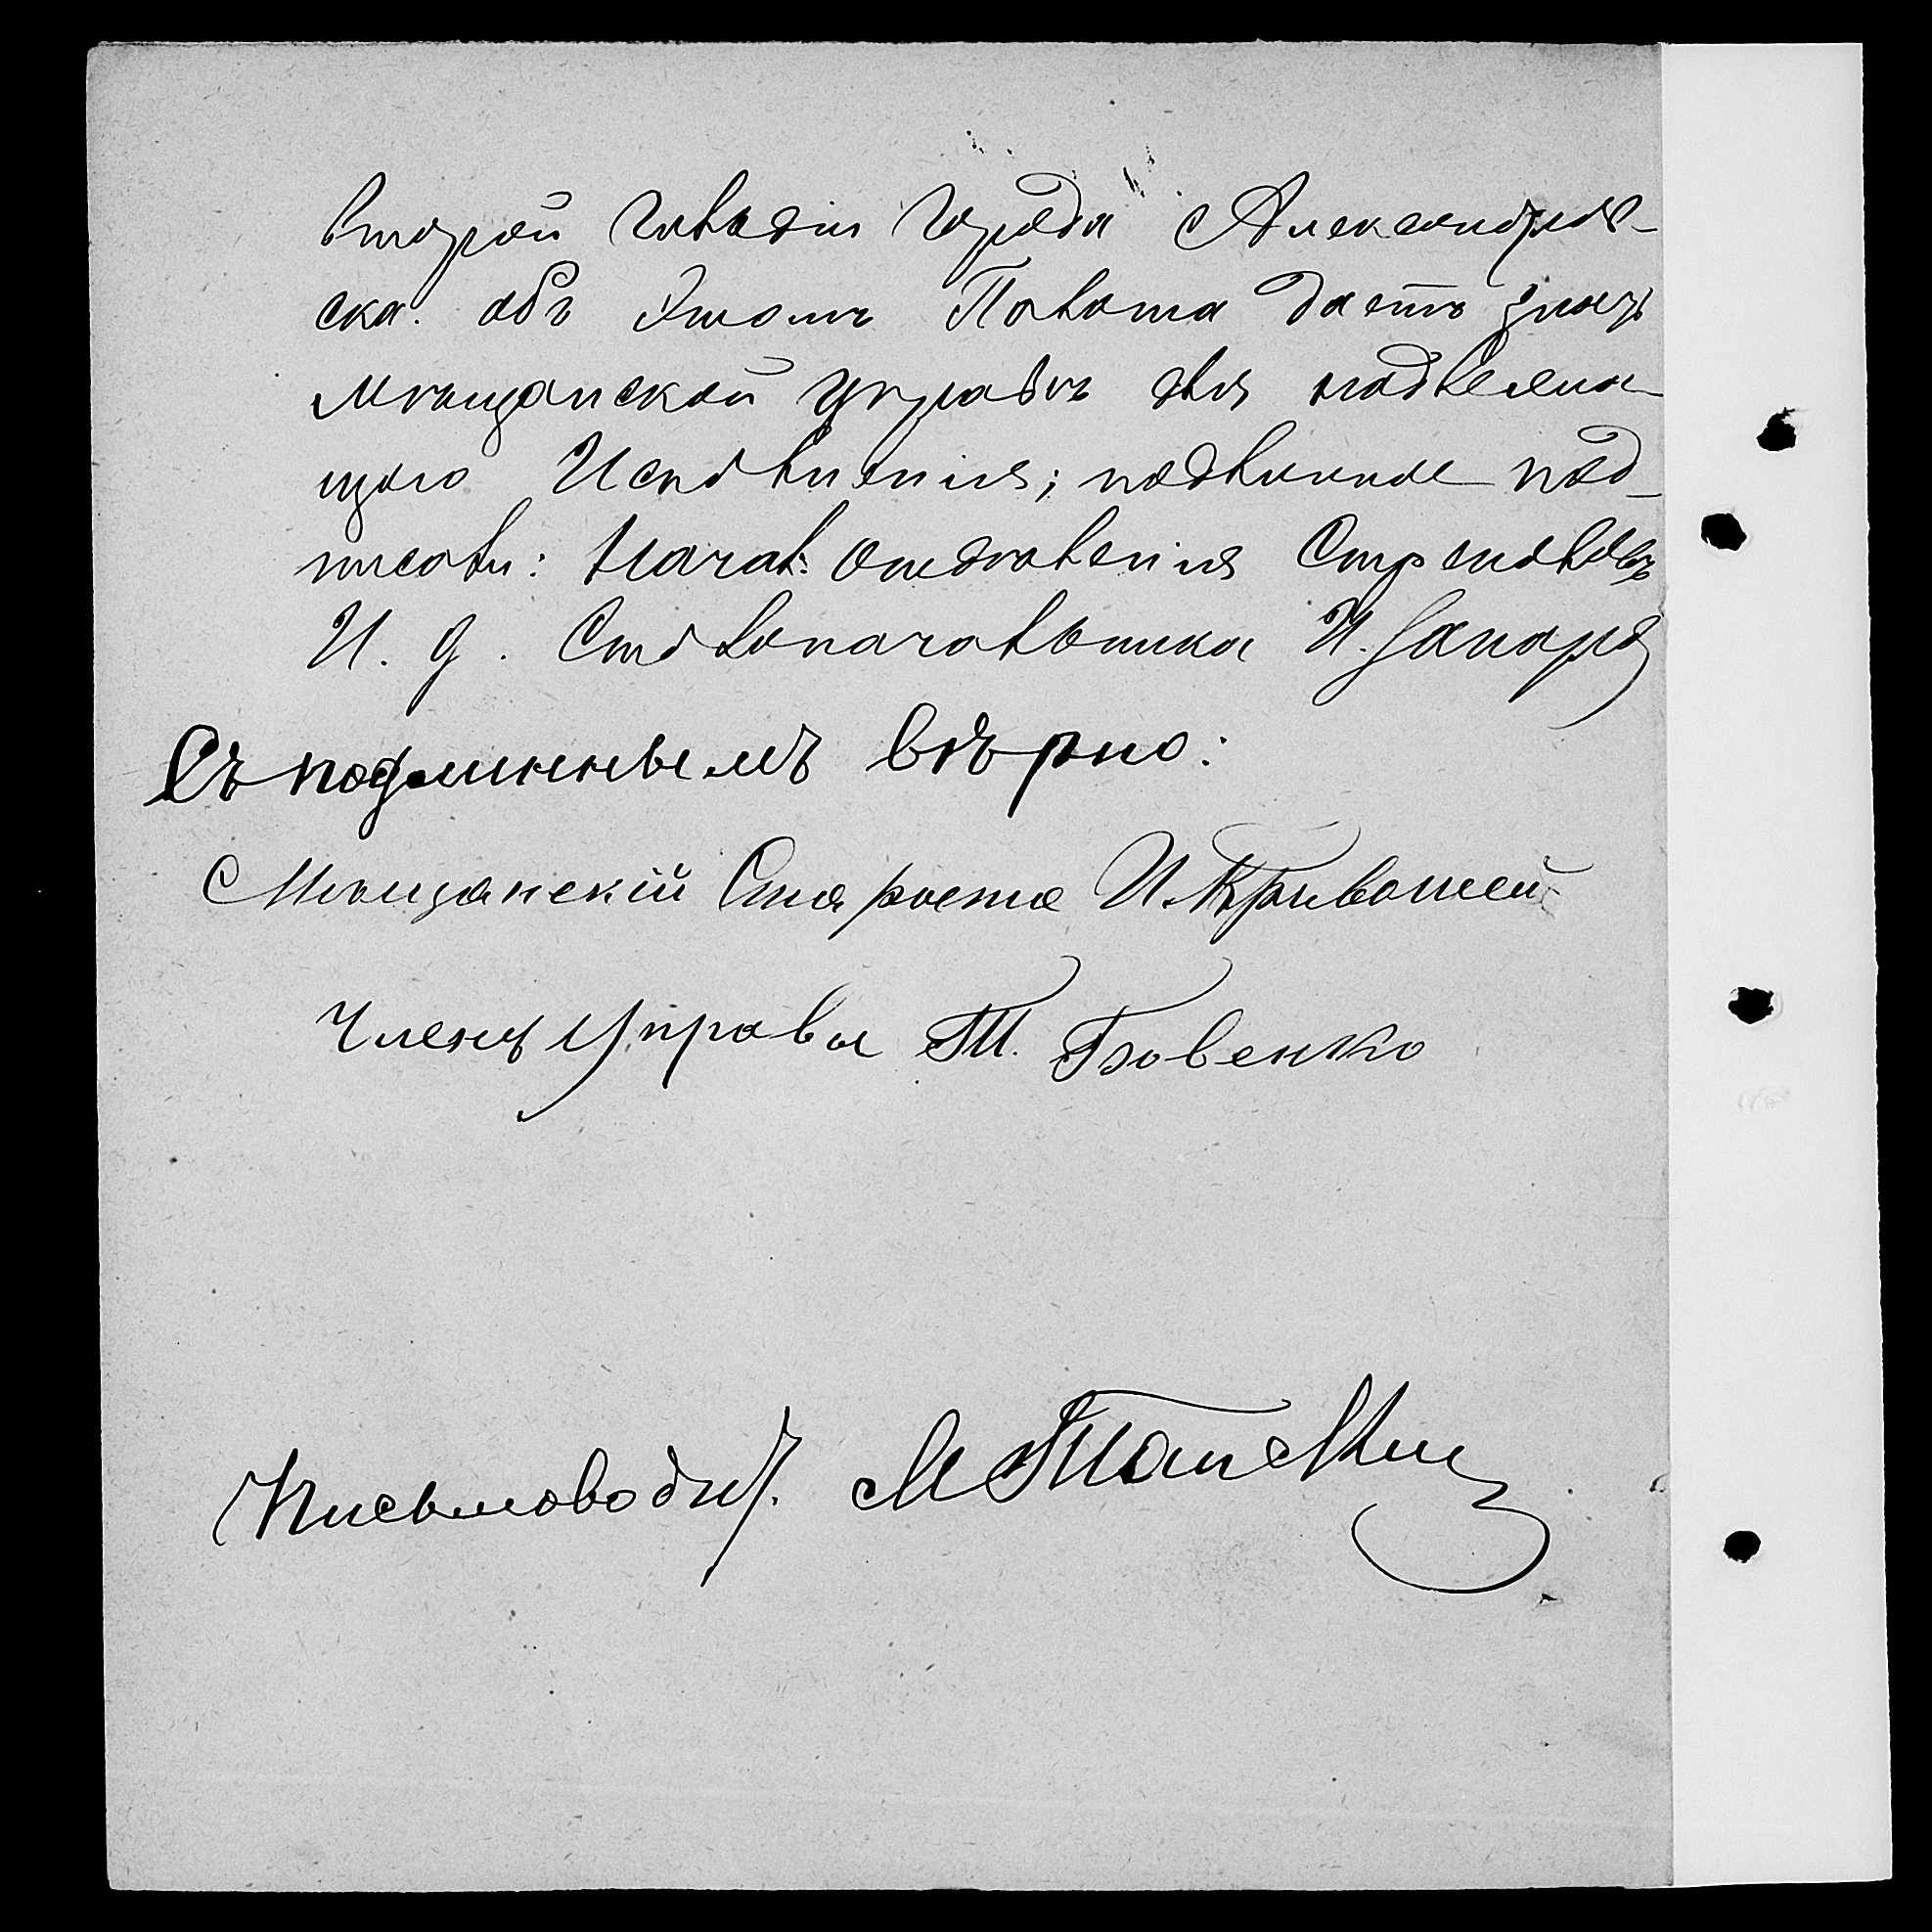 второй гильдіи города Александров-
ска. объ Этомъ Палата даетъ знать
Мѣщанской управѣ для надлежа-
щаго Исполненія; подлинное под-
писали: Начал: отдѣленія Стрельковъ
И. д. Столоначальника И.
Съ подлиннымъ вѣрно:
Мѣщанскій Староста И. Кривошей
Членъ Управы П. Бовенко
Письмоводит. М